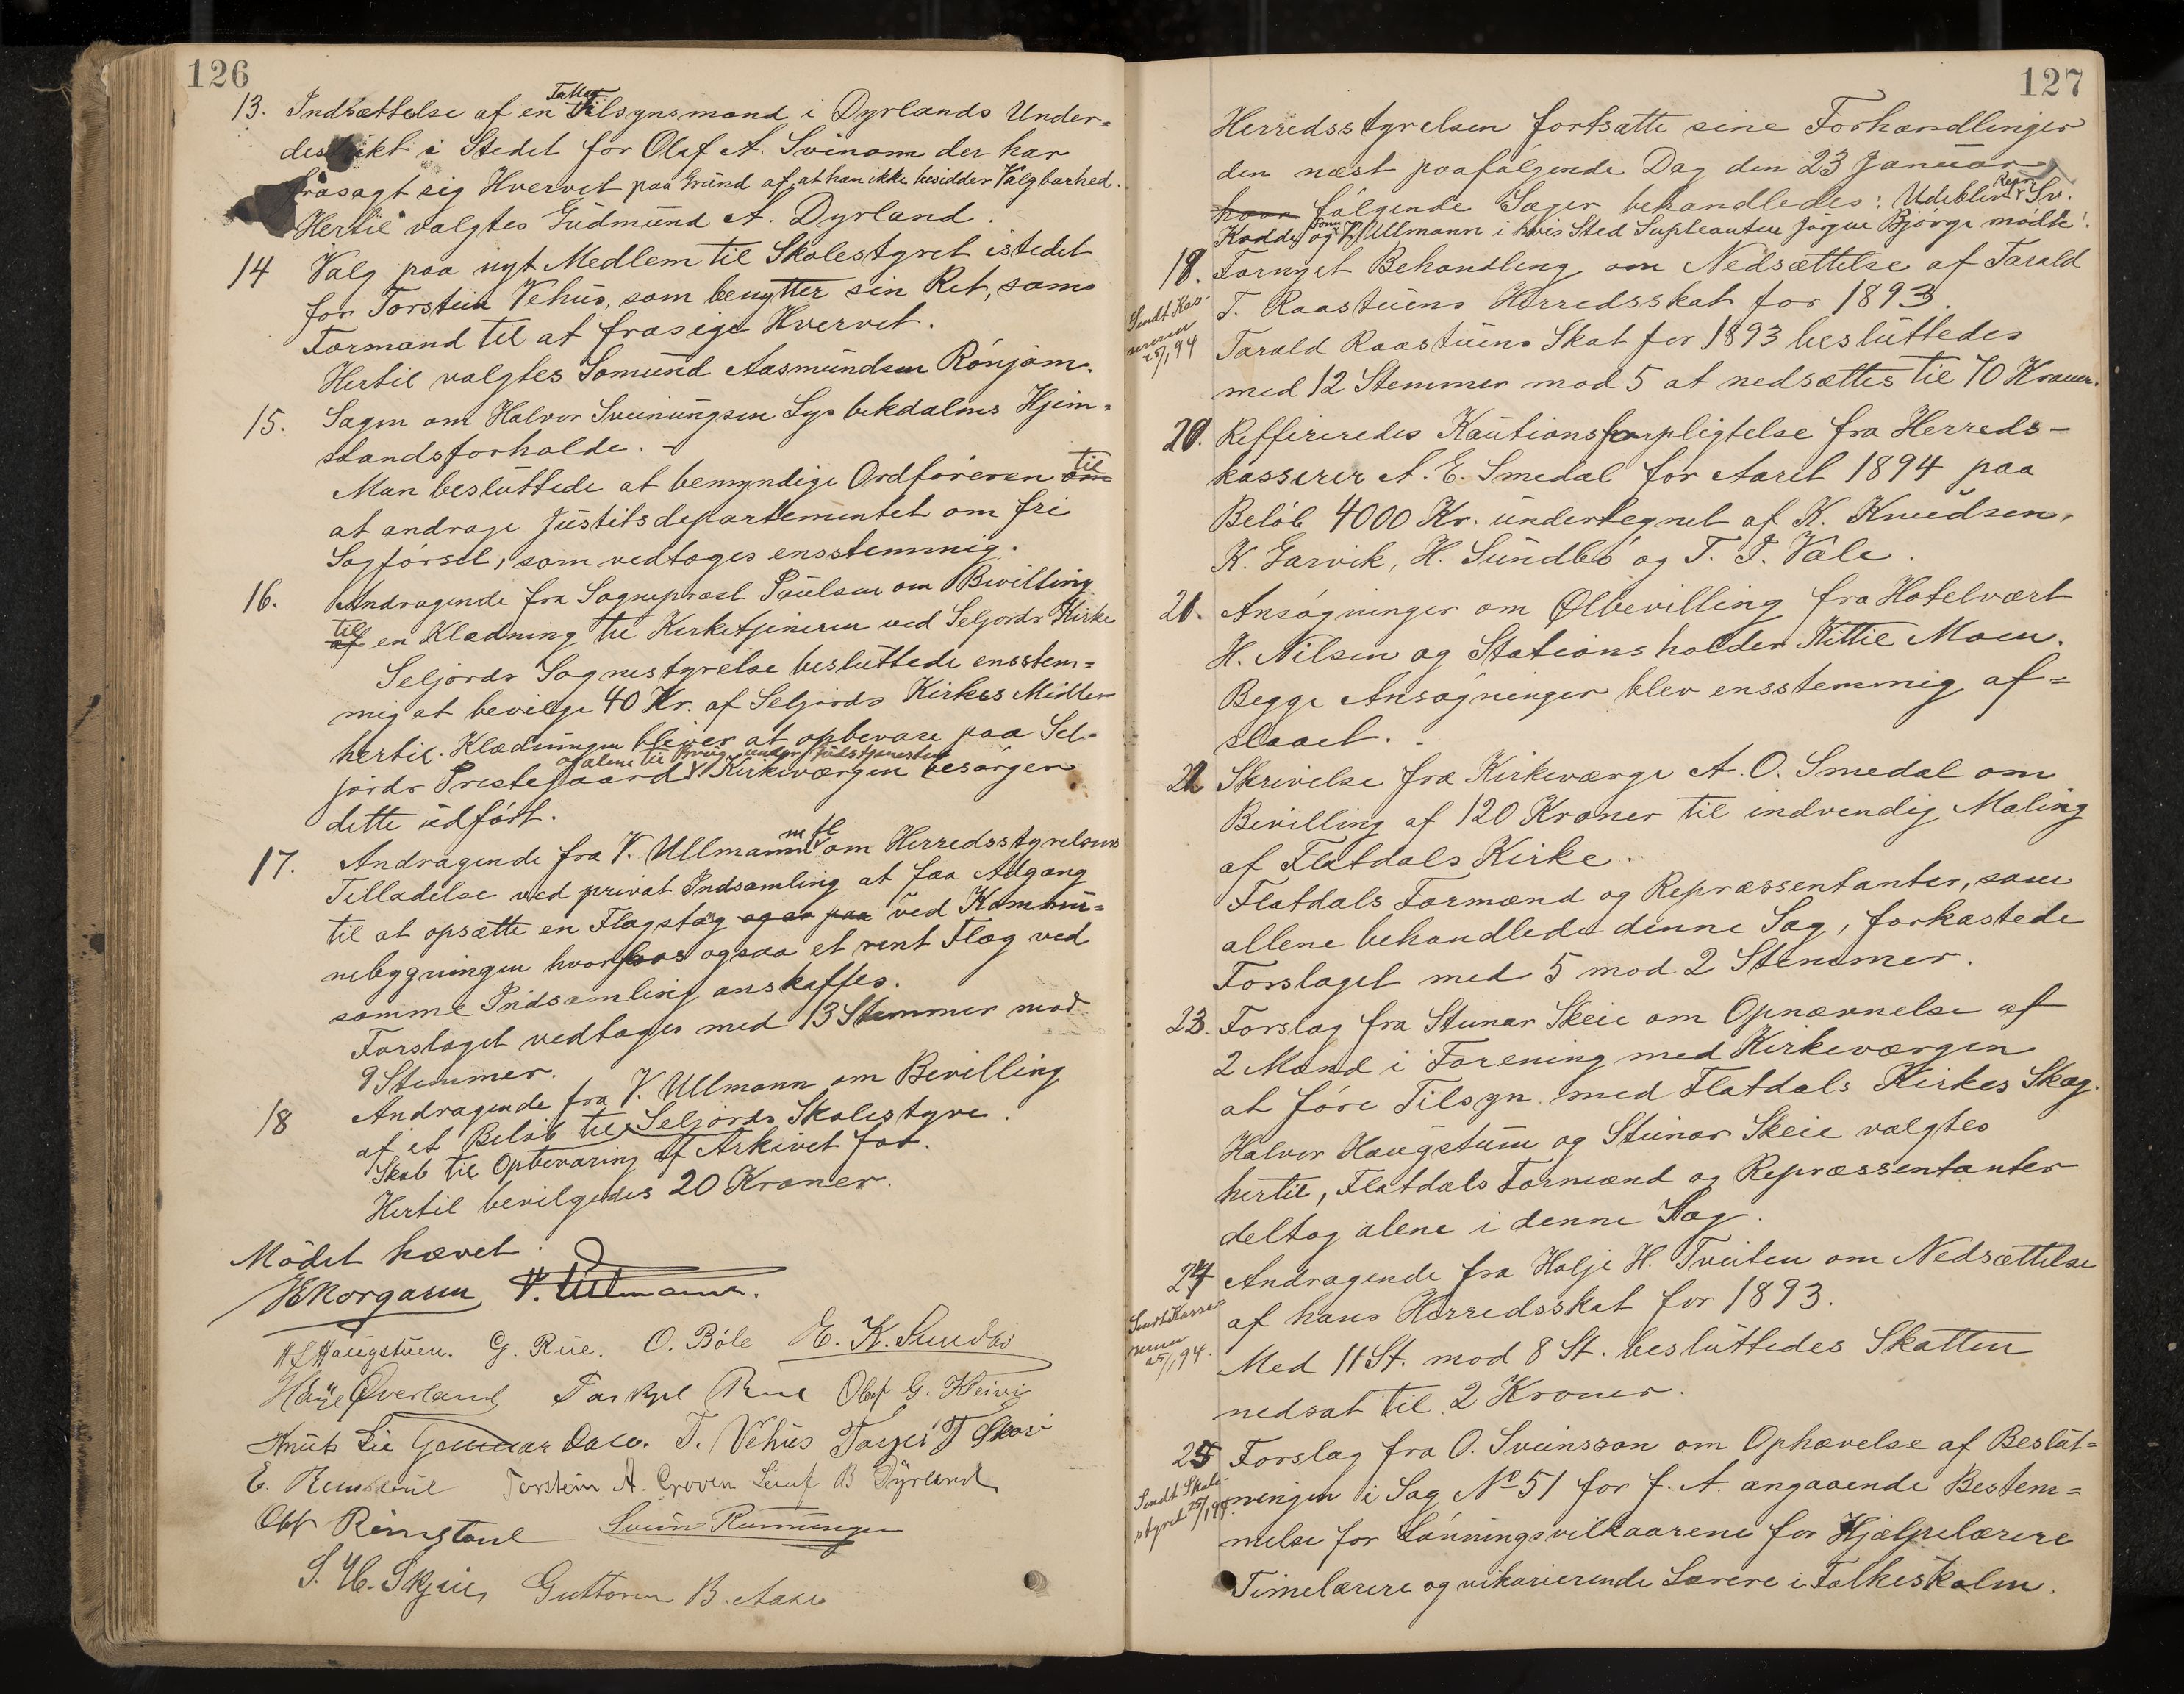 126
13. Indsættelse af en Tilsynsmand i Dyrlands Under=
distrikt i Stedet for Olaf A. Svinom der har
frasagt sig Hvervet paa Grund af, at han ikke besidder Valgbarhed.
Hertil valgtes Gudmund A. Dyrland.
14 Valg paa nyt Medlem til Skolestyret istedet
for Torstein Vehus, som benytter sin Ret, som
Formand til at frasige Hvervet.
Hertil valgtes Somund Aasmundsen Rónjom.
15. Sagen om Halvor Sveinungsen Lysbekdalens Hjem=
standsforholde. -
til
Man besluttede at bemyndige Ordføreren om
at andrage Justitsdepartementet om fri
Sagførsel, som vedtoges ensstemmig.
16. Andragende fra Sognepræst Paulsen om Bevilling
til
af en Klædning til Kirketjeneren ved Seljords Kirke
Seljords Sognestyrelse besluttede ensstem=
mig at bevilge 40 Kr. af Seljords Kirkes Midler
hertil. Klædningen bliver at opbevare paa Sel=
og alene til Brug under Gudstjenesten
jords Prestegaard Kirkeværgen besørger
dette udført.
m fl
17. Andragende fra V. Ullmann om Herredsstyrelsens
Tilladelse ved privat Indsamling at faa Adgang
til at opsætte en Flagstag og saa paa ved Kommu=
nebygningen hvorhos ogsaa et rent Flag ved
samme Indsamling anskaffes.
Forslaget vedtoges med 13 Stemmer mod
9 Stemmer.
18 Andragende fra V. Ullmann om Bevilling
af et Beløb til Seljords Skolestyre.
Skab til Opbevaring af Arkivet for.
Hertil bevilgedes 20 Kroner.
Mødet hævet.
V. Ullmann.
H H Haugstuen. G. Rue. O. Bøle E. K. Sundbø
Høye Øverland Tarkjel Rue Olaf G. Kleivi
Knut Lie Gunnar Dale. T. Vehus Tarjei T Skori
E. Torstein A. Groven Leiuf B Dyrland
Olaf Rinstoul Svein Runningen
S. H. Skjeie Guttorm B. Aase
127
Herredsstyrelsen fortsatte sine Forhandlinger
den næst paafølgende Dag den 23 Januar
Repr
hvor følgende Sager behandledes: Udeblev Sv.
Form
Kodde og V. Ullmann i hvis Sted Supleanten Jógne Bjórge mødte.
19. Fornyet Behandling om Nedsættelse af Tarald
T. Raastuens Herredsskat for 1893.
Sendt Kas-
sereren
25/1 94
Tarald Raastuens Skat for 1893 besluttedes
med 12 Stemmer mod 5 at nedsættes til 70 Kroner.
20. Reffereredes Kautionsforpligtelse fra Herreds-
kasserer A. E. Smedal for Aaret 1894 paa
Beløb 4000 Kr. undertegnet af K. Knudsen,
K. Garvik, H. Sundbó og T. T. Vále.
21. Ansøgninger om Ølbevilling fra Hotelvært
H. Nilsen og Stationsholder Kittil Moen.
Begge Ansøgninger blev ensstemmig af=
slaaet.
22 Skrivelse fra Kirkeværge A. O. Smedal om
Bevilling af 120 Kroner til indvendig Maling
af Flatdals Kirke.
Flatdals Formænd og Repræssentanter, som
allene behandlede denne Sag, forkastede
Forslaget med 5 mod 2 Stemmer.
23. Forslag fra Steinar Skeie om Opnævnelse af
2 Mænd i Forening med Kirkeværgen
at føre Tilsyn med Flatdals Kirkes Skog.
Halvor Haugstuen og Steinar Skeie valgtes
hertil, Flatdals Formænd og Repræssentanter
deltog alene i denne Sag.
24 Andragende fra Halje H. Tveiten om Nedsættelse
af hans Herredsskat for 1893.
Sendt Kasse-
reren
25/1 94.
Med 11 St. mod 8 St. besluttedes Skatten
nedsat til 2 Kroner.
25 Forslag fra O. Sveinsson om Ophævelse af Beslut=
ningen i Sag No 51 for f. A. angaaende Bestem=
Sendt Skole-
styret 25/1 94.
melse for Lønningsvilkaarene for Hjælpelærere
Timelærere og vikarierende Lærere i Folkeskolen.